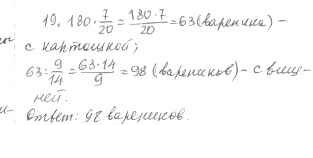 19. 180 · 7/20 = 180·7/20 = 63 (вареника) –
с картошкой;
63 : 9/14 = 63·14/9 = 98 (вареников) – с виш-
ней.
Ответ: 98 вареников.